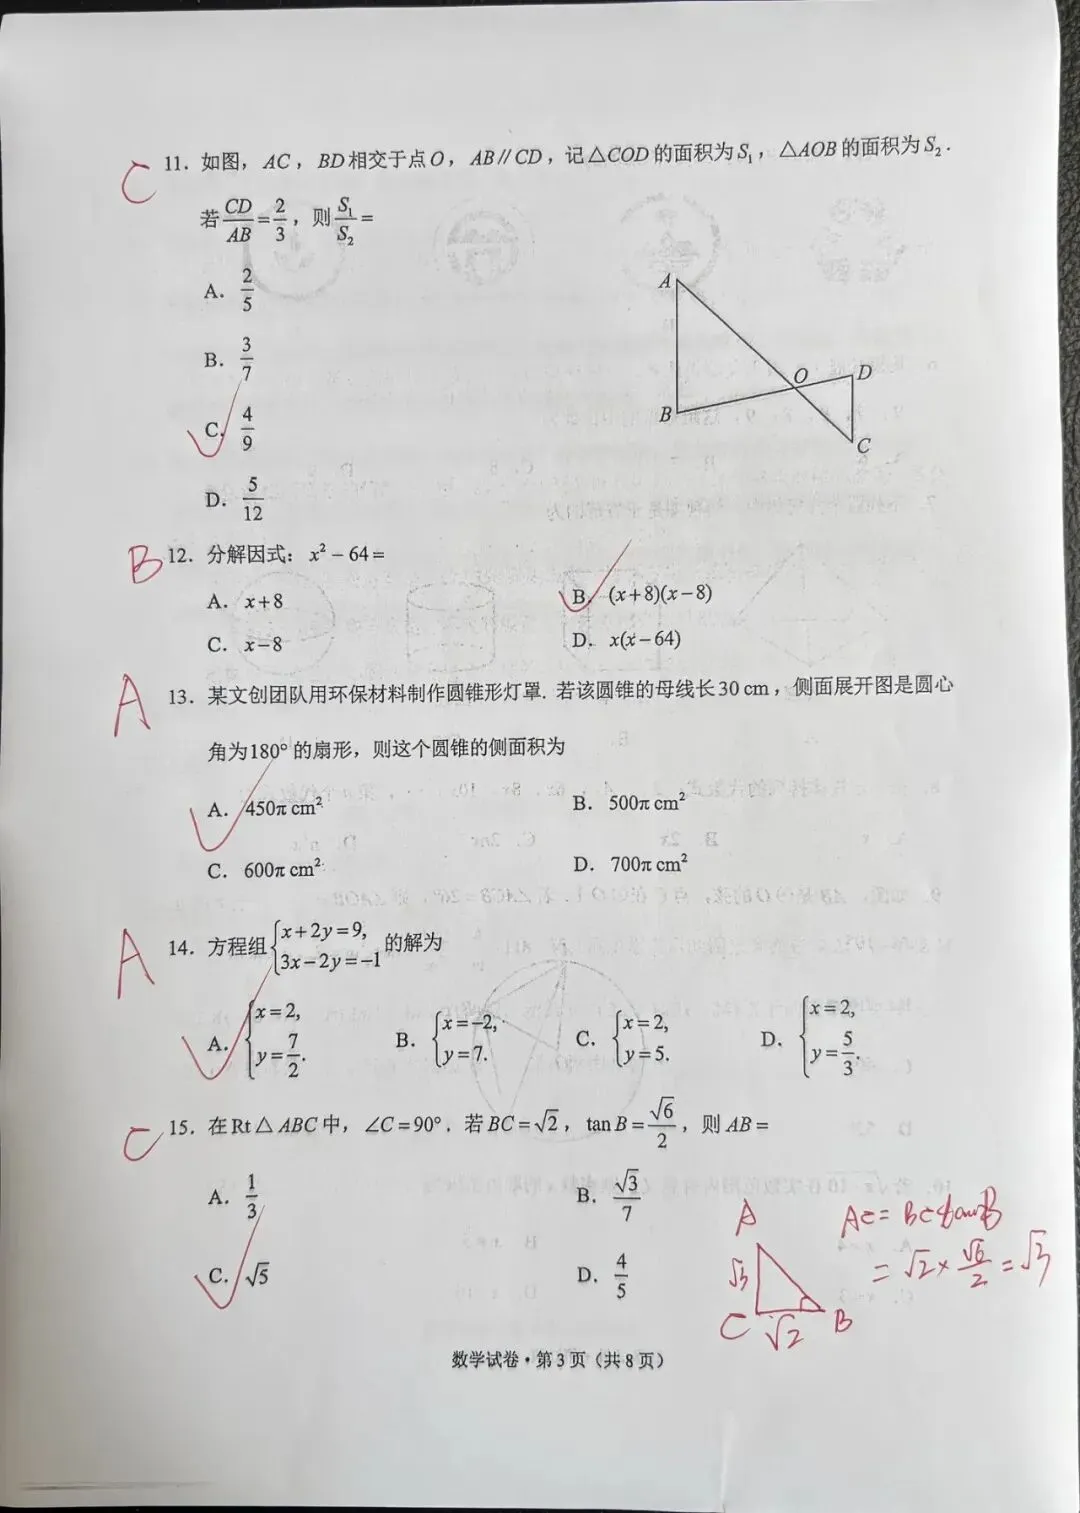 C 11. 如图，AC，BD相交于点O，AB∥CD，记△COD的面积为S₁，△AOB的面积为S₂.
若CD/AB=2/3，则S₁/S₂=
A. 2/5
B. 3/7
C. 4/9
D. 5/12
A
B
O
D
C
B 12. 分解因式：x²－64＝
A. x+8
B. (x+8)(x－8)
C. x－8
D. x(x－64)
A 13. 某文创团队用环保材料制作圆锥形灯罩. 若该圆锥的母线长30 cm，侧面展开图是圆心
角为180°的扇形，则这个圆锥的侧面积为
A. 450π cm²
B. 500π cm²
C. 600π cm²
D. 700π cm²
A 14. 方程组{x+2y=9, 3x－2y=－1 的解为
A. {x=2, y=7/2.
B. {x=－2, y=7.
C. {x=2, y=5.
D. {x=2, y=5/3.
C 15. 在Rt△ABC中，∠C=90°. 若BC=√2，tan B=√6/2，则AB=
A. 1/3
B. √3/7
C. √5
D. 4/5
A
√3
C √2 B
AC=BC·tanB
=√2×√6/2=√3
数学试卷·第3页（共8页）